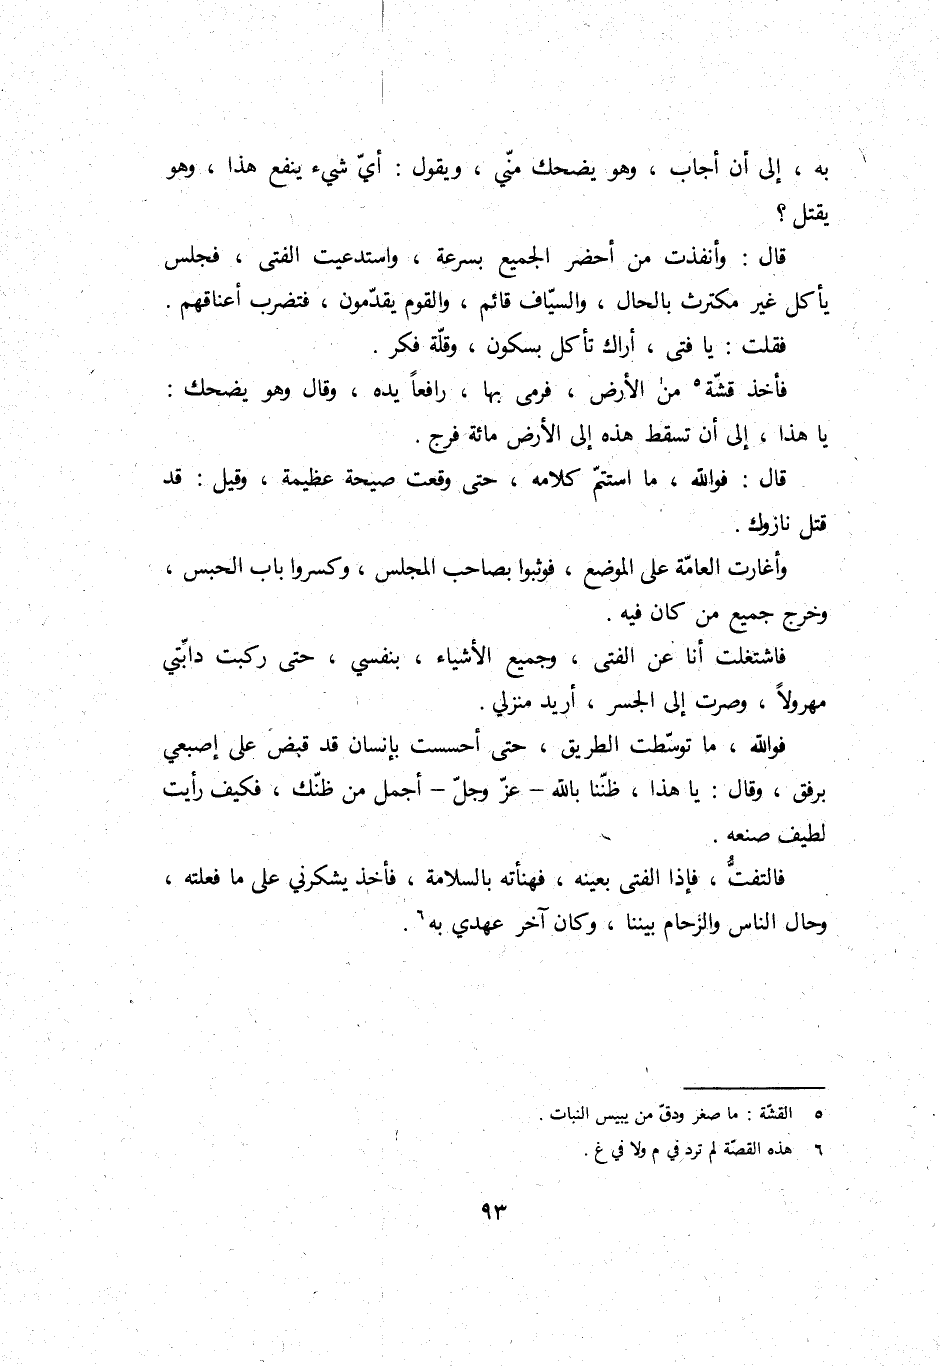 به ، إلى أن أجاب ، وهو يضحك منّي ، ويقول : أيّ شيء ينفع هذا ، وهو
يقتل ؟
قال : وأنفذت من أحضر الجميع بسرعة ، واستدعيت الفتى ، فجلس
يأكل غير مكترث بالحال ، والسيّاف قائم ، والقوم يقدّمون ، فتضرب أعناقهم .
فقلت : يا فتى ، أراك تأكل بسكون ، وقلّة فكر .
فأخذ قشّة٥ من الأرض ، فرمى بها ، رافعاً يده ، وقال وهو يضحك :
يا هذا ، إلى أن تسقط هذه إلى الأرض مائة فرج .
قال : فوالله ، ما استتمّ كلامه ، حتى وقعت صيحة عظيمة ، وقيل : قد
قتل نازوك .
وأغارت العامّة على الموضع ، فوثبوا بصاحب المجلس ، وكسروا باب الحبس ،
وخرج جميع من كان فيه .
فاشتغلت أنا عن الفتى ، وجميع الأشياء ، بنفسي ، حتى ركبت دابّتي
مهرولاً ، وصرت إلى الجسر ، أريد منزلي .
فوالله ، ما توسّطت الطريق ، حتى أحسست بإنسان قد قبض على إصبعي
برفق ، وقال : يا هذا ، ظنّنا بالله – عزّ وجلّ – أجمل من ظنّك ، فكيف رأيت
لطيف صنعه .
فالتفتُّ ، فإذا الفتى بعينه ، فهنأته بالسلامة ، فأخذ يشكرني على ما فعلته ،
وحال الناس والزحام بيننا ، وكان آخر عهدي به٦ .
٥ القشّة : ما صغر ودقّ من يبيس النبات .
٦ هذه القصّة لم ترد في م ولا في غ .
٩٣